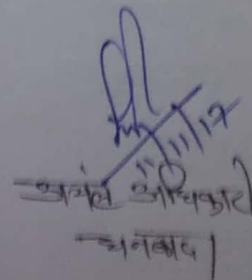 11/11/17
अंचल अधिकारी
धनबाद।